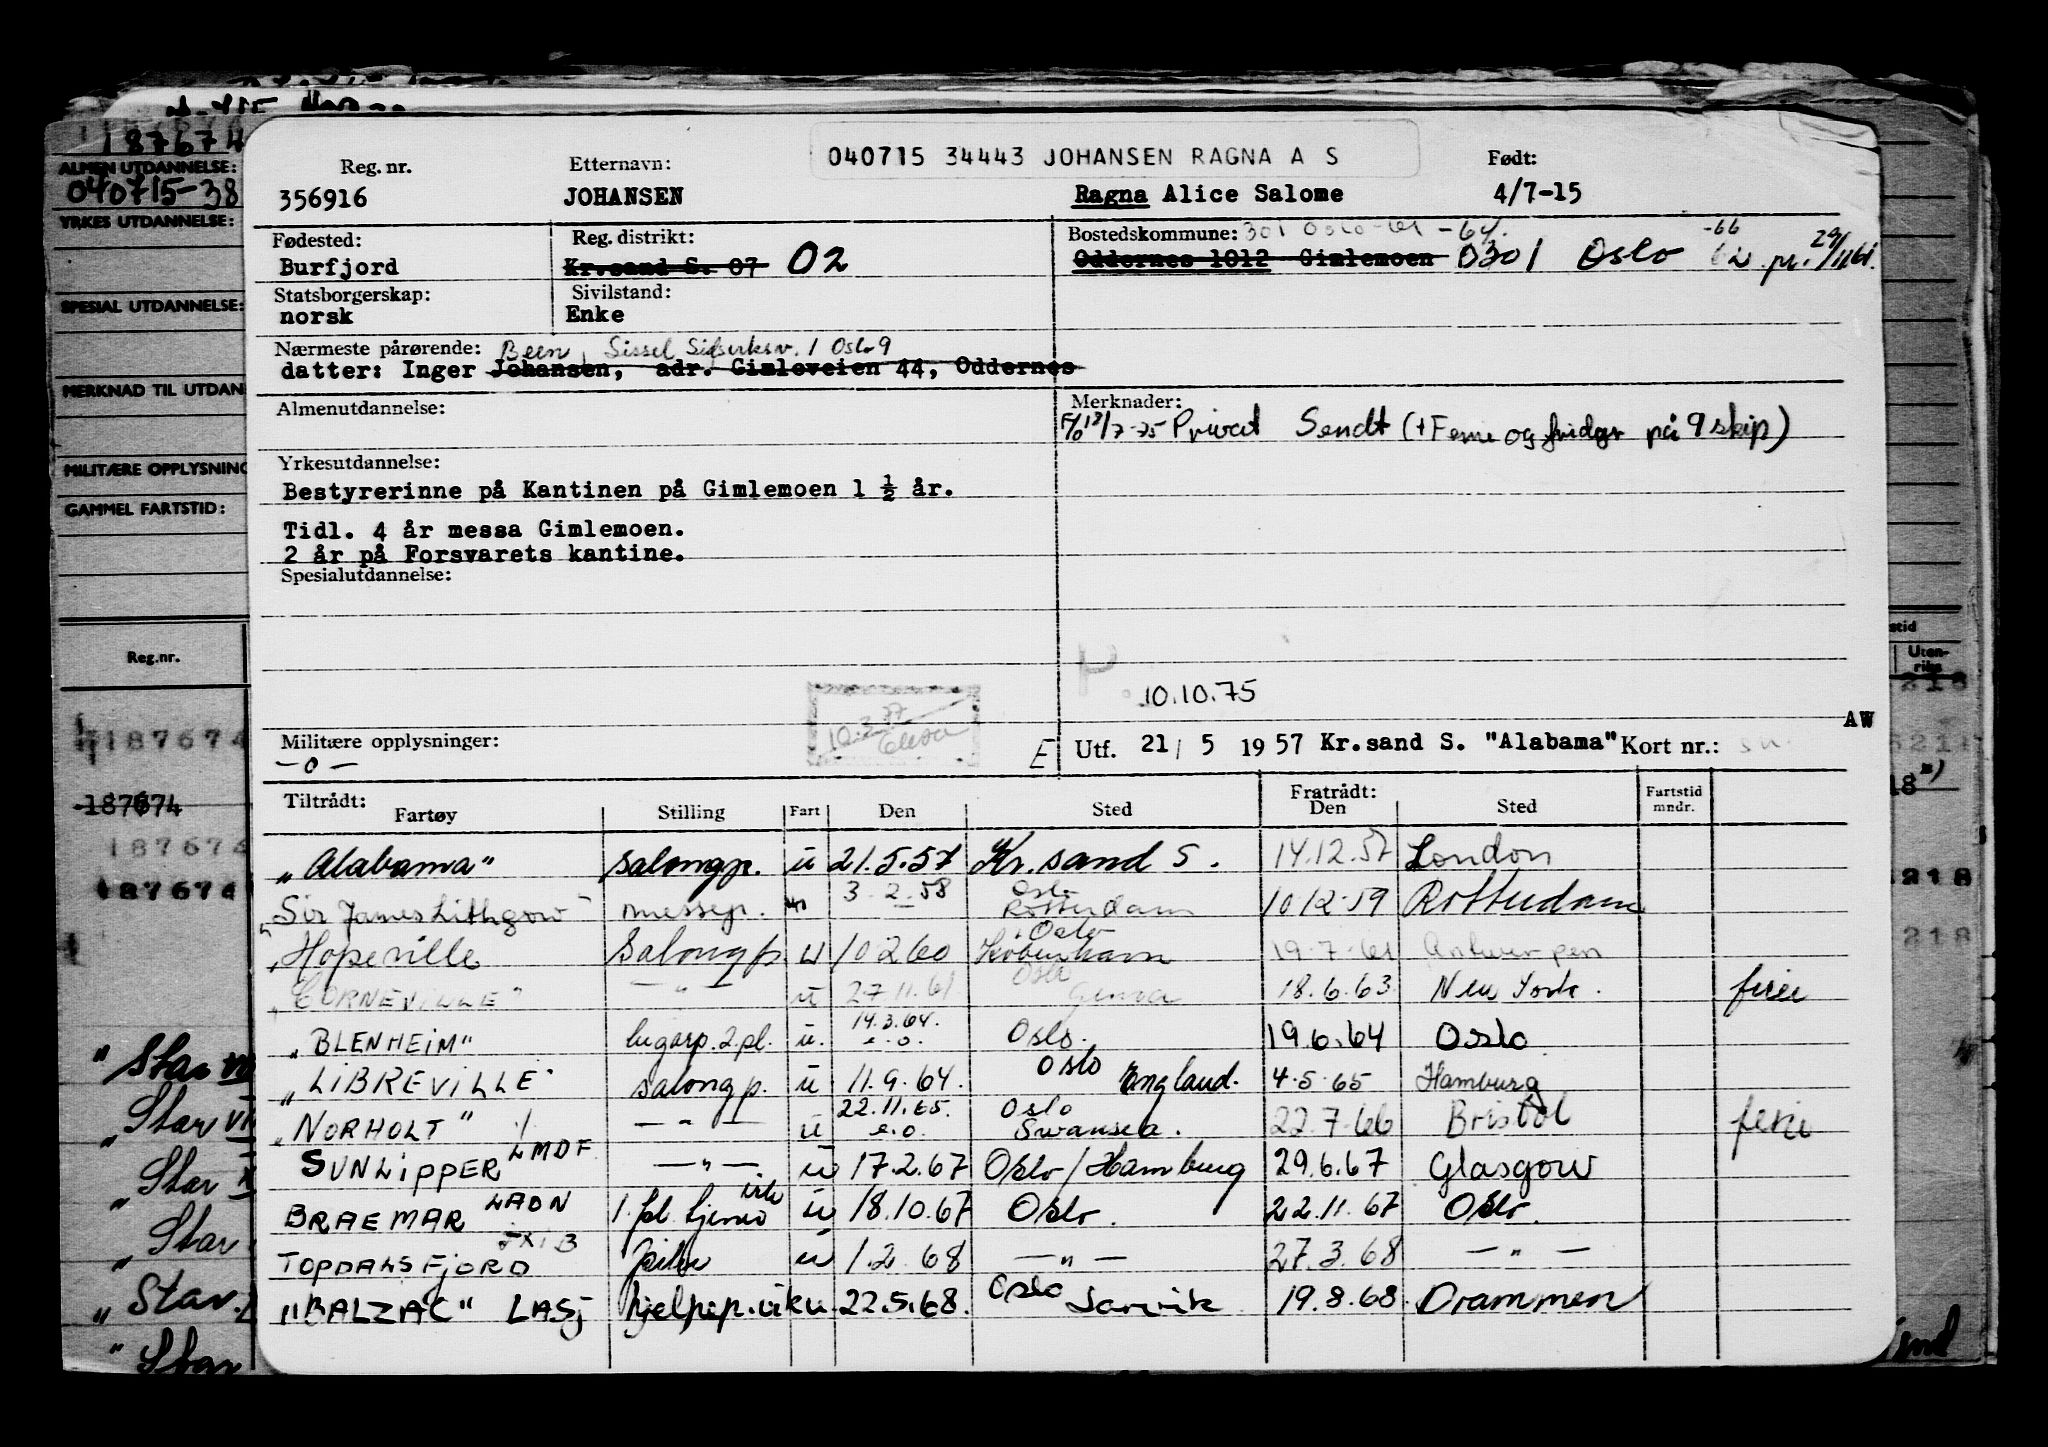 187674
040715 34443 JOHANSEN RAGNA A S
ALMEN UTDANNELSE:
040715-38
YRKES UTDANNELSE:
SPESIAL UTDANNELSE:
MERKNAD TIL UTDAN
MILITÆRE OPPLYSNING
GAMMEL FARTSTID:
Reg.nr.
187674
187674
187674
187674
"Star
"Star
"Star
"Star
"Star
"Star
Reg. nr. Etternavn: Født:
356916 JOHANSEN Ragna Alice Salome 4/7-15
Fødested: Reg. distrikt: Bostedskommune: 301 Oslo -64. -66
Burfjord Kr.sand S. 07 02 Oddernes 1012 Gimlemoen 0301 Oslo
Statsborgerskap: Sivilstand:
norsk Enke
Nærmeste pårørende: Been, Sissel 1 Oslo 9
datter: Inger Johansen, adr. Gimleveien 44, Oddernes
Almenutdannelse: Merknader:
Privat Sendt (+ Ferie og fridgr på 9 skip)
Yrkesutdannelse:
Bestyrerinne på Kantinen på Gimlemoen 1 ½ år.
Tidl. 4 år messa Gimlemoen.
2 år på Forsvarets kantine.
Spesialutdannelse:
10.10.75
AW
Militære opplysninger: E Utf. 21/5 1957 Kr.sand S. "Alabama" Kort nr.:
-0-
Tiltrådt: Fratrådt: Fartstid
Fartøy Stilling Fart Den Sted Den Sted mndr.
"Alabama" salongp. u 21.5.57 Kr.sand S. 14.12.57 London
"Sir James Lithgow" messep. u 3.2.58 Oslo Rotterdam 10 12 59 Rotterdam
"Hopeville Salongp u 10 2 60 Oslo København 19.7.61 Antwerpen
"CORNEVILLE" - " - u 27.11.61 Oslo Genova 18.6.63 New York. ferie
"BLENHEIM" lugarp. 2.pl. u. 14.3.64. e.o. Oslo. 19.6.64 Oslo
"LIBREVILLE" salongp. u 11.9.64. Oslo England. 4.5.65 Hamburg
"NORHOLT" - " - u 22.11.65. e.o. Oslo Swansea. 22.7.66 Bristol ferie
SUNLIPPER LMDF - " - u 17.2.67 Oslo/Hamburg 29.6.67 Glasgow
BRAEMAR LADN 1. pl. u 18.10.67 Oslo. 22.11.67 Oslo.
TOPDALSFJORD u 1.2.68 - " - 27.3.68 - " -
"BALZAC" LASJ hjelpep. u 22.5.68. Oslo Larvik 19.8.68 Drammen
stid
Uten-
riks
218
218
218